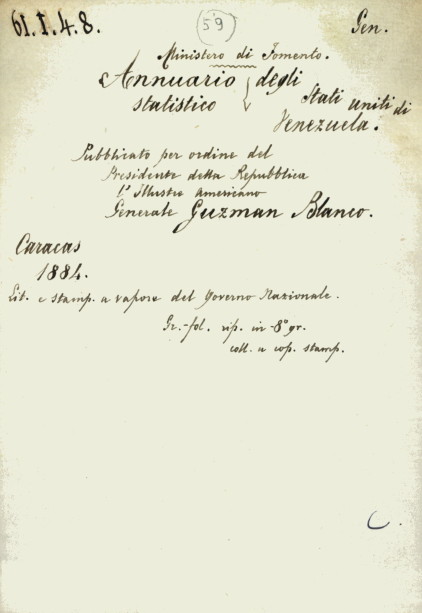 61.I.4.8.
59
Gen.
Ministero di Fomento.
Annuario degli
statistico Stati uniti di
Venezuela.
Pubblicato per ordine del
Presidente della Repubblica
l'illustre americano
Generale Guzman Blanco.
Caracas
1884.
Lit. e stamp. a vapore del Governo Nazionale.
Gr.-fol. rip. in-8° gr.
coll. a cop. stamp.
C.